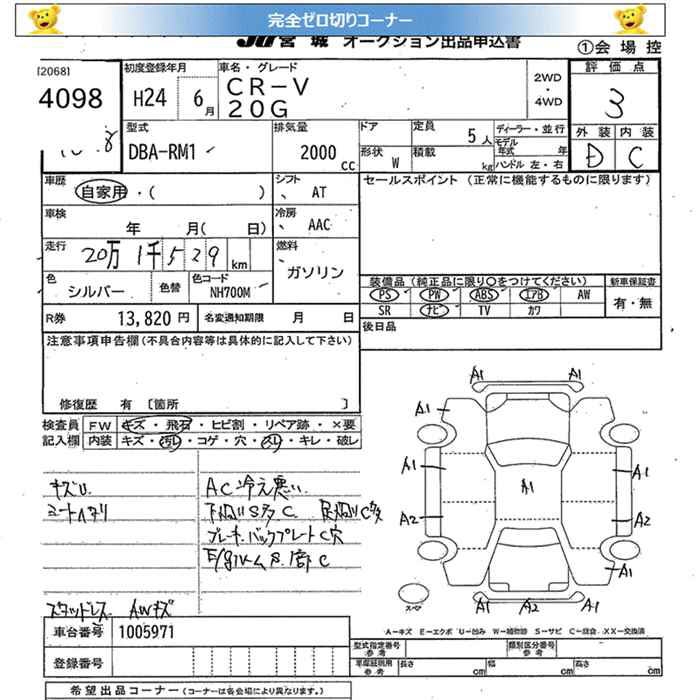 完全ゼロ切りコーナー
JU宮城 オークション出品申込書
①会場控
[2068]
4098
初度登録年月
H24 6月
車名・グレード
CR-V
20G
2WD
・
4WD
評価点
3
外装 内装
D C
型式
DBA-RM1
排気量
2000cc
ドア
形状 W
定員 5人
積載 kg
ディーラー・並行
モデル年式 年
ハンドル 左・右
車歴
自家用・( )
シフト
AT
セールスポイント (正常に機能するものに限ります)
車検
年 月( 日)
冷房
AAC
走行
20万1千529km
燃料
ガソリン
色
シルバー
色替
色コード
NH700M
装備品 (純正品に限り○をつけてください)
新車保証書
PS PW ABS エアB AW
有・無
SR ナビ TV カワ
R券 13,820円
名変通知期限 月 日
後日品
注意事項申告欄 (不具合内容等は具体的に記入して下さい)
修復歴 有 〔箇所 〕
検査員
記入欄
FW キズ・飛石・ヒビ割・リペア跡・×要
内装 キズ・汚レ・コゲ・穴・スレ・キレ・破レ
キズU
シートヘタリ
AC冷え悪い
下廻りS多C
ブレーキ.バックプレートC穴
スタッドレス AWキズ
A1 A1
A1
A1 A1 A1
A2 A2
A1 A1
A1 A2 A1
スペア
A-キズ E-エクボ U-凹み W-補修跡 S-サビ C-腐食 XX-交換済
車台番号 1005971
登録番号
型式指定番号
参考
類別区分番号
参考
車庫証明用
参考
長さ cm
幅 cm
高さ cm
希望出品コーナー (コーナーは各会場により異なります。)